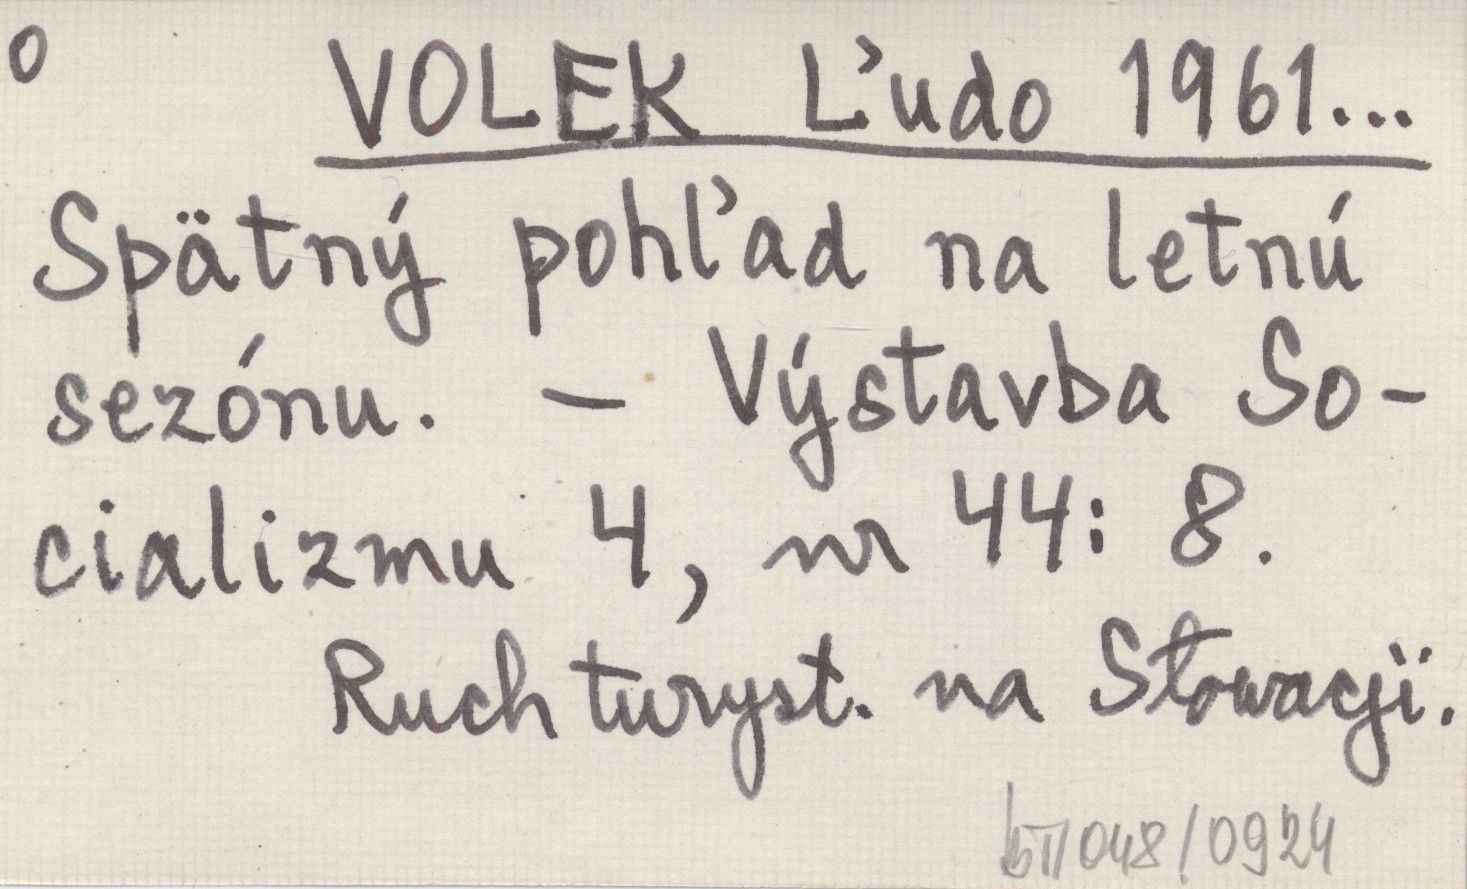 o VOLEK Ľudo 1961...
Spätný pohľad na letnú
sezónu. – Výstavba So-
cializmu 4, nr 44: 8.
Ruch turyst. na Słowacji.
bT/048/0924